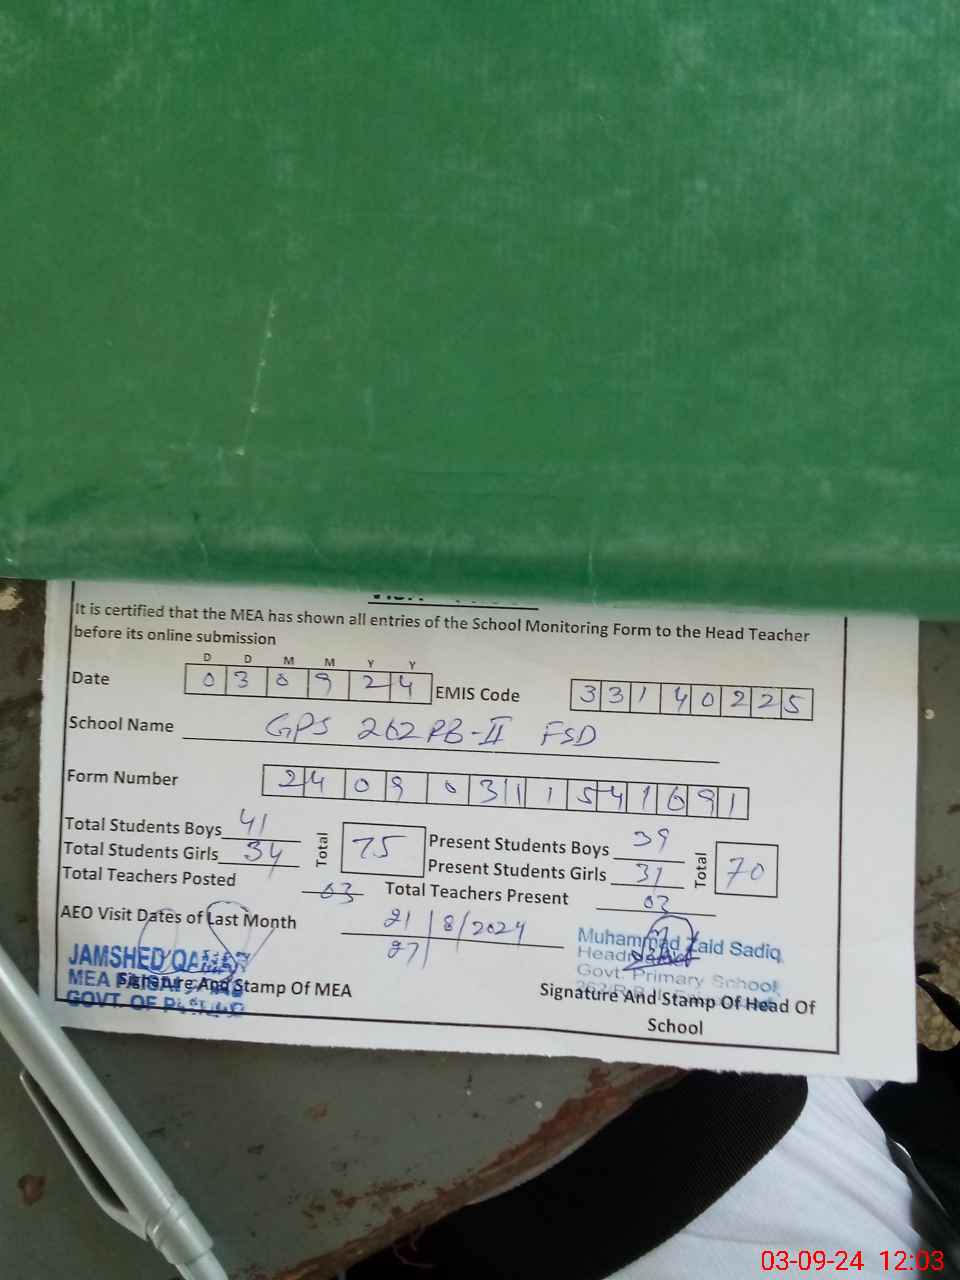 It is certified that the MEA has shown all entries of the School Monitoring Form to the Head Teacher
before its online submission
D D M M Y Y
Date 0 3 0 9 2 4 EMIS Code 3 3 1 4 0 2 2 5
School Name GPS 262 RB-II FSD
Form Number 2 4 0 9 0 3 1 1 5 4 1 6 9 1
Total Students Boys 41 Total 75 Present Students Boys 39 Total 70
Total Students Girls 34 Present Students Girls 31
Total Teachers Posted 03 Total Teachers Present 03
AEO Visit Dates of Last Month 21/8/2024
27
JAMSHED
MEA
GOVT. OF
Signature And Stamp Of MEA
Muhammad Zaid Sadiq
Govt. Primary School
Signature And Stamp Of Head Of
School
03-09-24 12:03